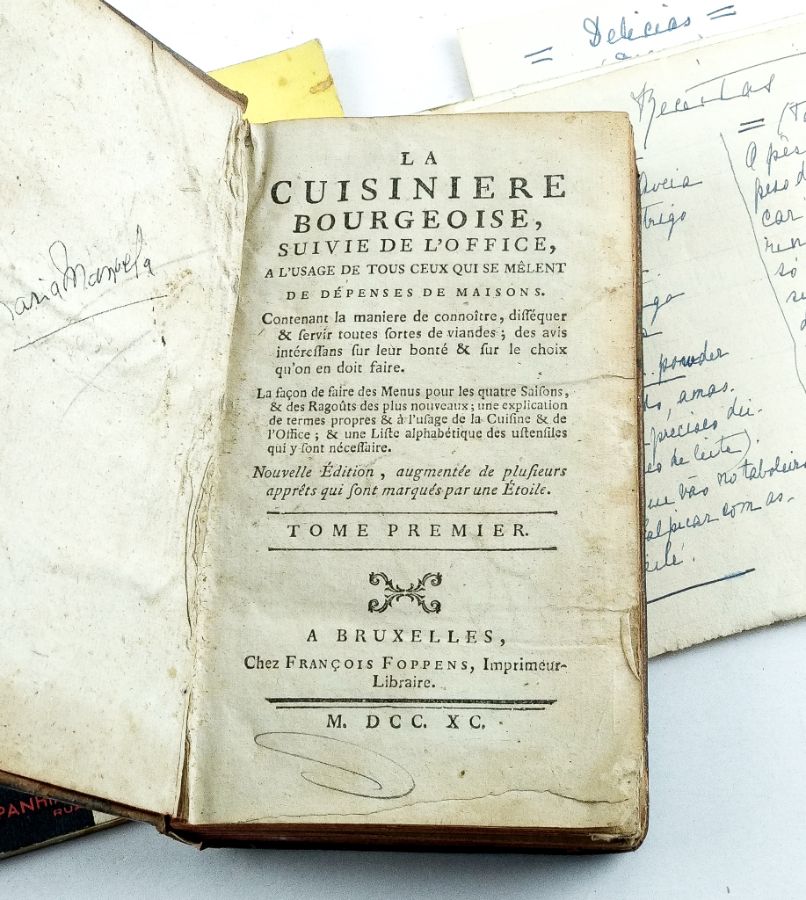 LA
CUISINIERE
BOURGEOISE,
SUIVIE DE L'OFFICE,
A L'USAGE DE TOUS CEUX QUI SE MÊLENT
DE DÉPENSES DE MAISONS.
Contenant la maniere de connoître, diſſéquer
& ſervir toutes ſortes de viandes ; des avis
intéreſſans ſur leur bonté & ſur le choix
qu'on en doit faire.
La façon de faire des Menus pour les quatre Saiſons,
& des Ragoûts des plus nouveaux ; une explication
de termes propres & à l'uſage de la Cuiſine & de
l'Office ; & une Liſte alphabétique des uſtenſiles
qui y ſont néceſſaire.
Nouvelle Édition, augmentée de pluſieurs
apprêts qui ſont marqués par une Étoile.
TOME PREMIER.
A BRUXELLES,
Chez FRANÇOIS FOPPENS, Imprimeur-
Libraire.
M. DCC. XC.
Maria Manuela
= Delicias =
Receitas
aveia
trigo
poder
, amas.
preciso dei-
de leite).
vão no taboleiro
salpicar com as-
=
peso d
car
só